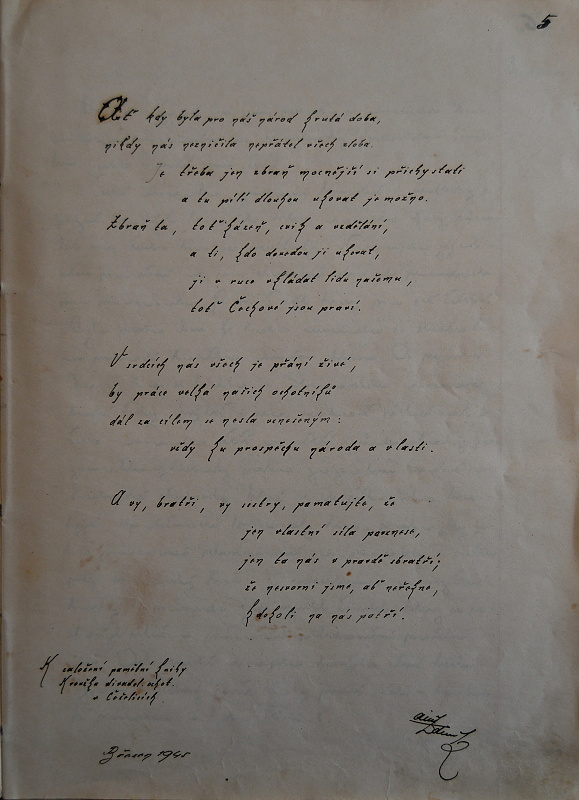 5
Ať kdy byla pro náš národ krutá doba,
nikdy nás nezničila nepřátel všech zloba.
Je třeba jen zbraň mocnější si přichystati
a tu pílí dlouhou ukovat je možno.
Zbraň ta, toť kázeň, cvik a vzdělání,
a ti, kdo dovedou ji ukovat,
ji v ruce vkládat lidu našemu,
toť Čechové jsou praví.
V srdcích nás všech je přání živé,
by práce velká našich ochotníků
dál za cílem se nesla vznešeným:
vždy ku prospěchu národa a vlasti.
A vy, bratři, vy sestry, pamatujte, že
jen vlastní síla povznese,
jen ta nás v pravdě sbratří;
že nesvorni jsme, ať neřekne,
kdokoli na nás patří.
K založení pamětní knihy
Kroužku divadel. ochot.
v Čečelicích.
Březen 1945